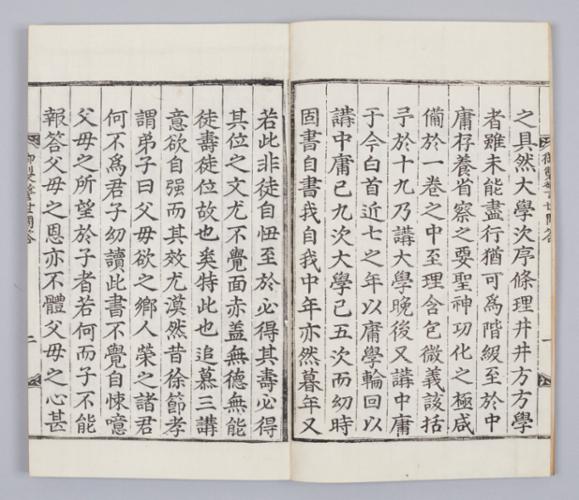 之具然大學次序條理井井方方學
者雖未能盡行猶可爲階級至於中
庸存養省察之要聖神功化之極咸
備於一卷之中至理含包微義該括
予於十九乃講大學晚後又講中庸
于今白首近七之年以庸學輪回以
講中庸已九次大學已五次而幼時
固書自書我自我中年亦然暮年又
御製警世問答
一
若此非徒自忸至於必得其壽必得
其位之文尤不覺面赤盖無德無能
徒壽徒位故也奚特此也追慕三講
意欲自强而其效尤漠然昔徐節孝
謂弟子曰父母欲之鄕人榮之諸君
何不爲君子幼讀此書不覺自悚噫
父母之所望於子者若何而子不能
報答父母之恩亦不體父母之心甚
御製警世問答
二